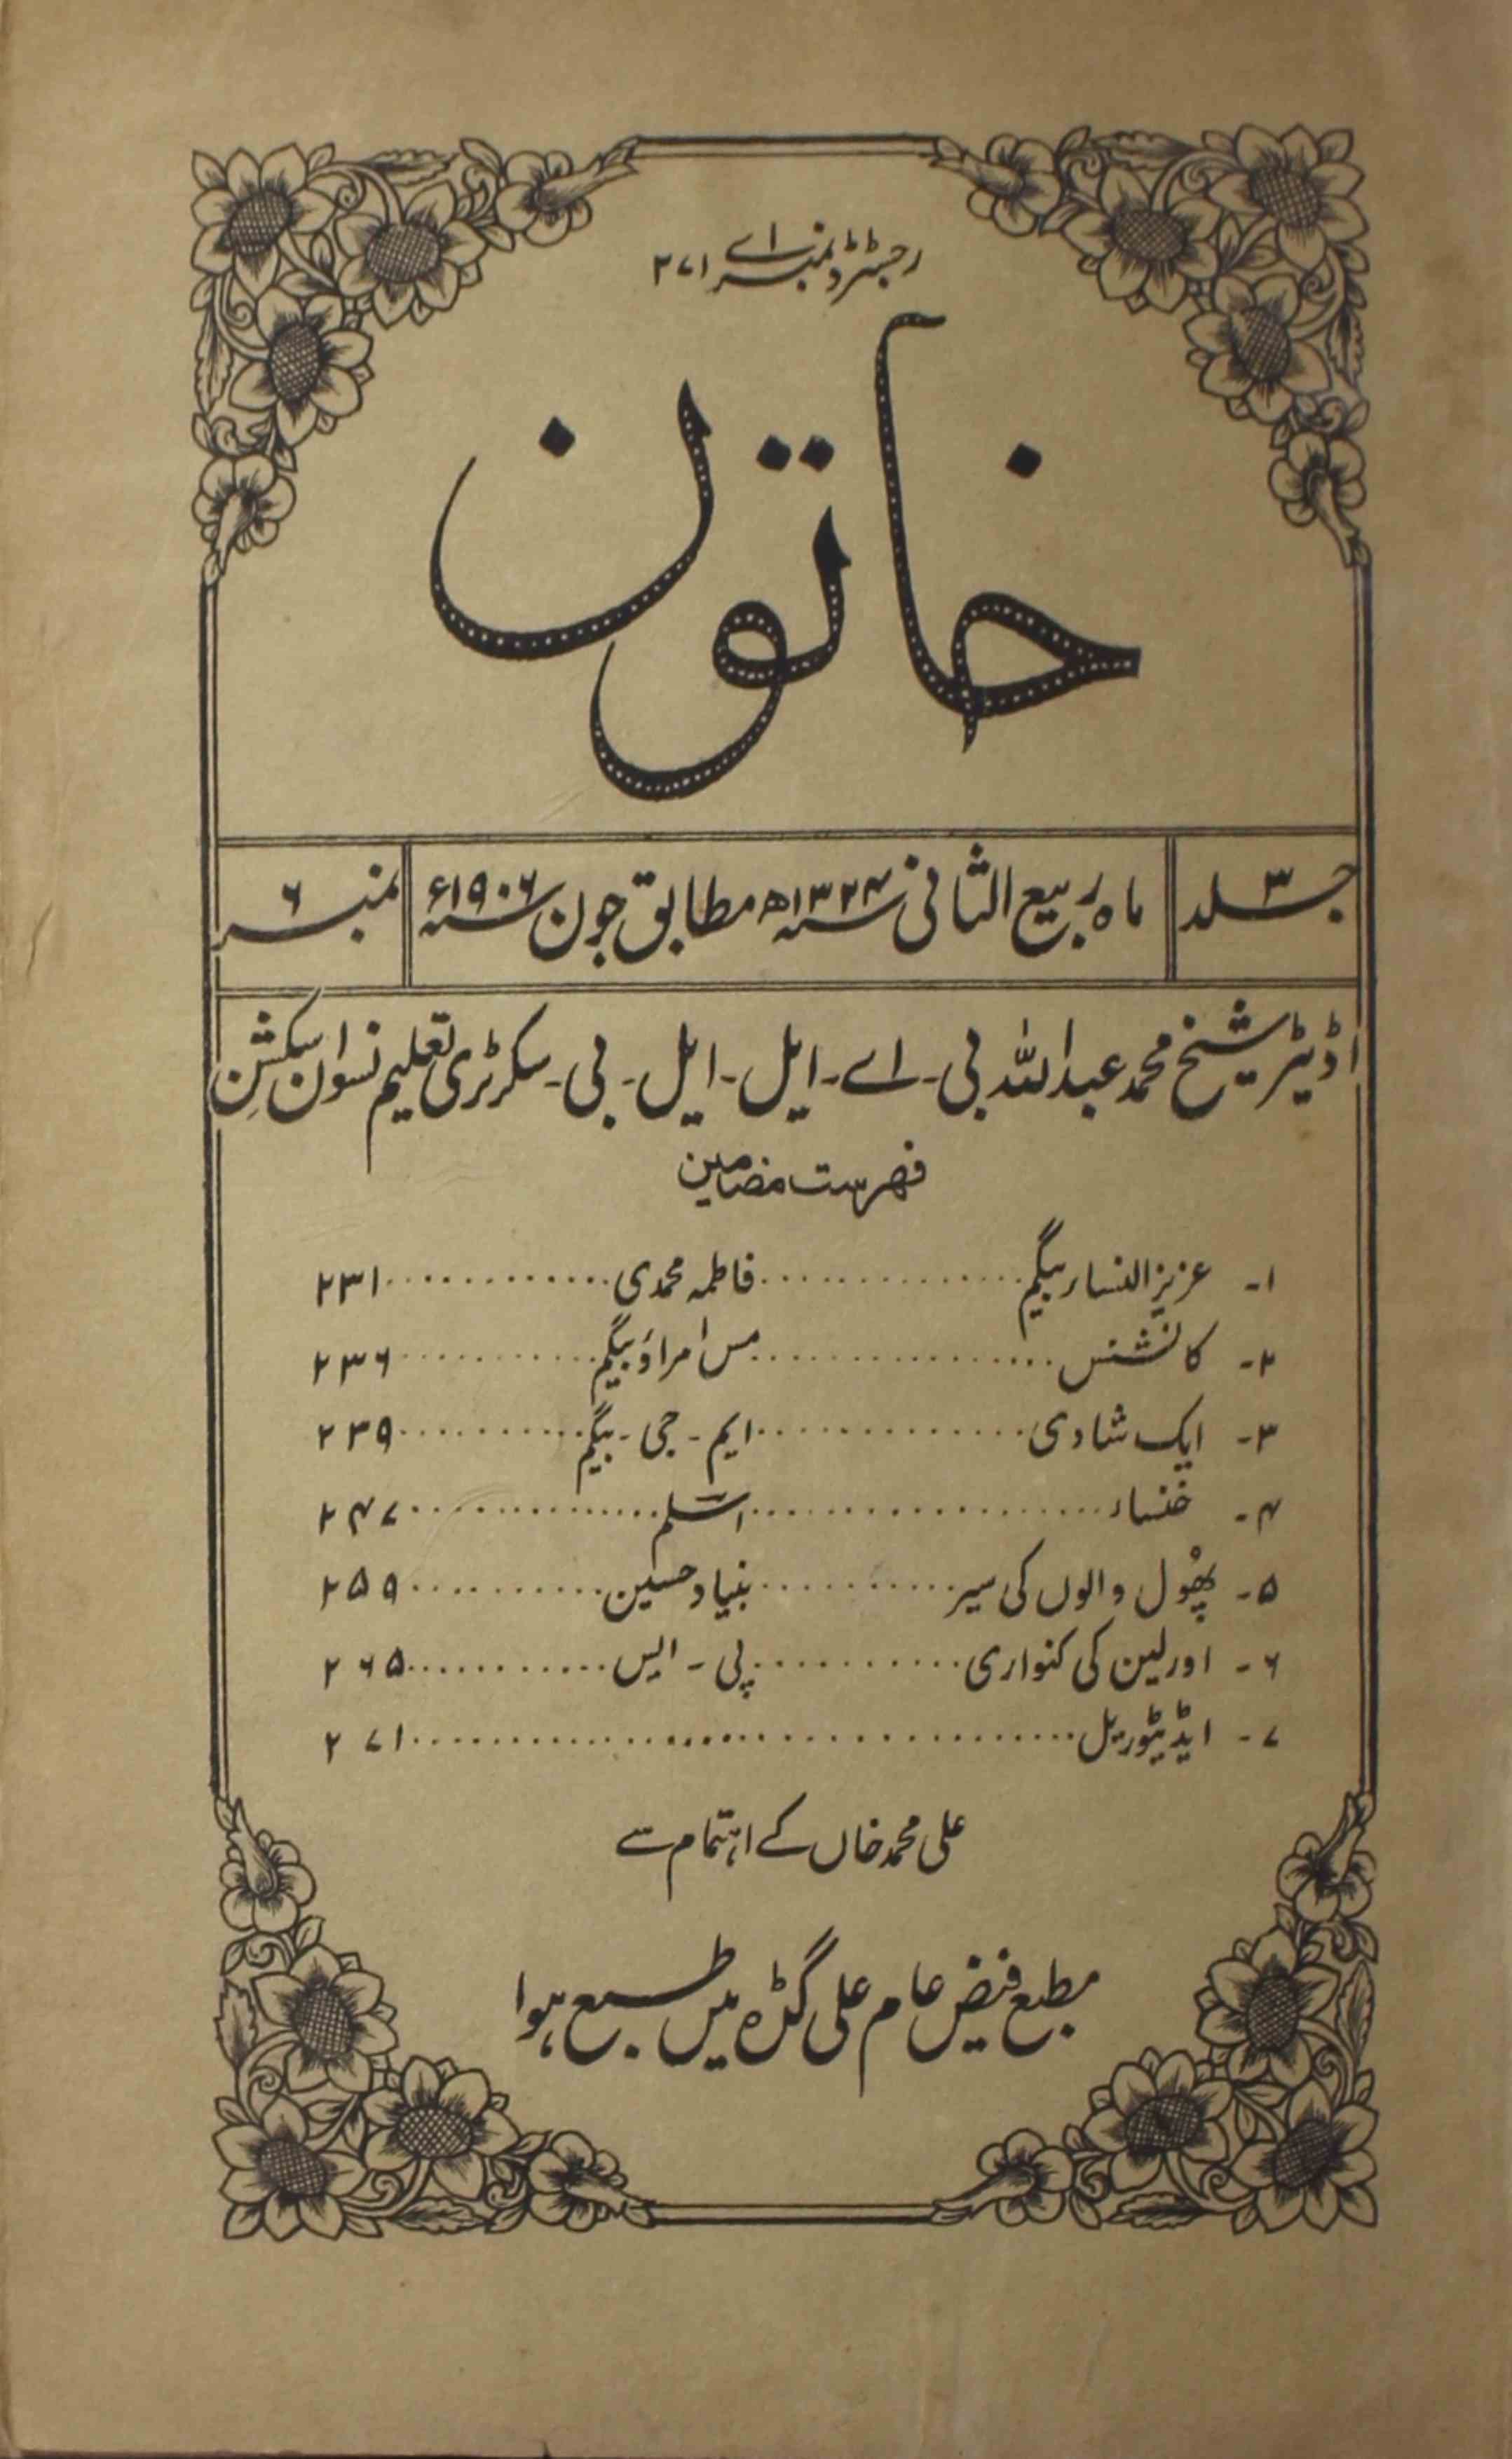 رجسٹرڈ نمبر اے ۲۷۱
خاتون
جلد ۳ ماہ ربیع الثانی سنہ ۱۳۲۴ھ مطابق جون سنہ ۱۹۰۶ء نمبر ۶
اڈیٹر شیخ محمد عبداللہ بی - اے - ایل - ایل - بی - سکرٹری تعلیم نسواں سکشن
فہرست مضامین
۱- عزیز النسار بیگم .............. فاطمہ محمدی ............ ۲۳۱
۲- کانشنس ................ مس امراؤ بیگم ........... ۲۳۶
۳- ایک شادی .............. ایم - جی - بیگم .......... ۲۳۹
۴- خنساء .................. اسلم ............. ۲۴۷
۵- پھول والوں کی سیر .......... بنیاد حسین .......... ۲۵۹
۶- اورلین کی کنواری .......... پی - ایس ........... ۲۶۵
۷- ایڈیٹوریل .................................. ۲۷۱
علی محمد خاں کے اہتمام سے
مطبع فیض عام علی گڑہ میں طبع ہوا